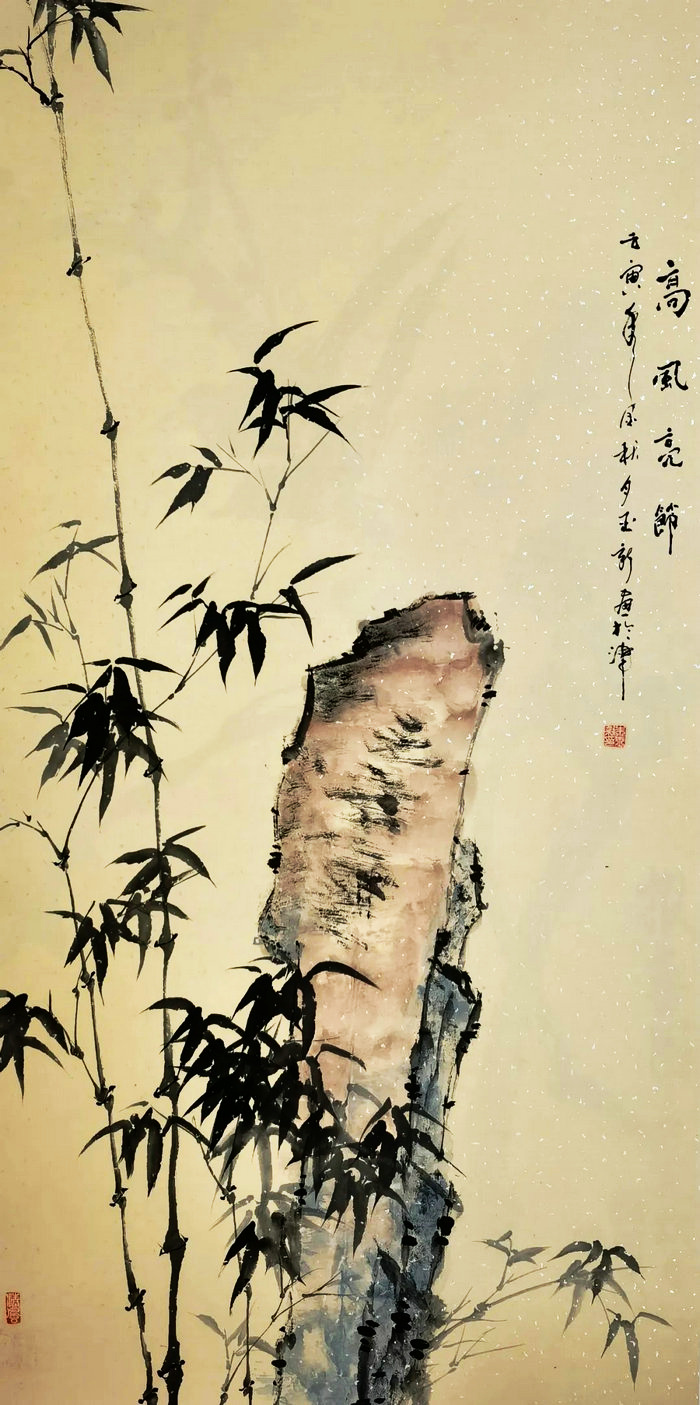 高風亮節
壬寅年 秋月 新畫於津